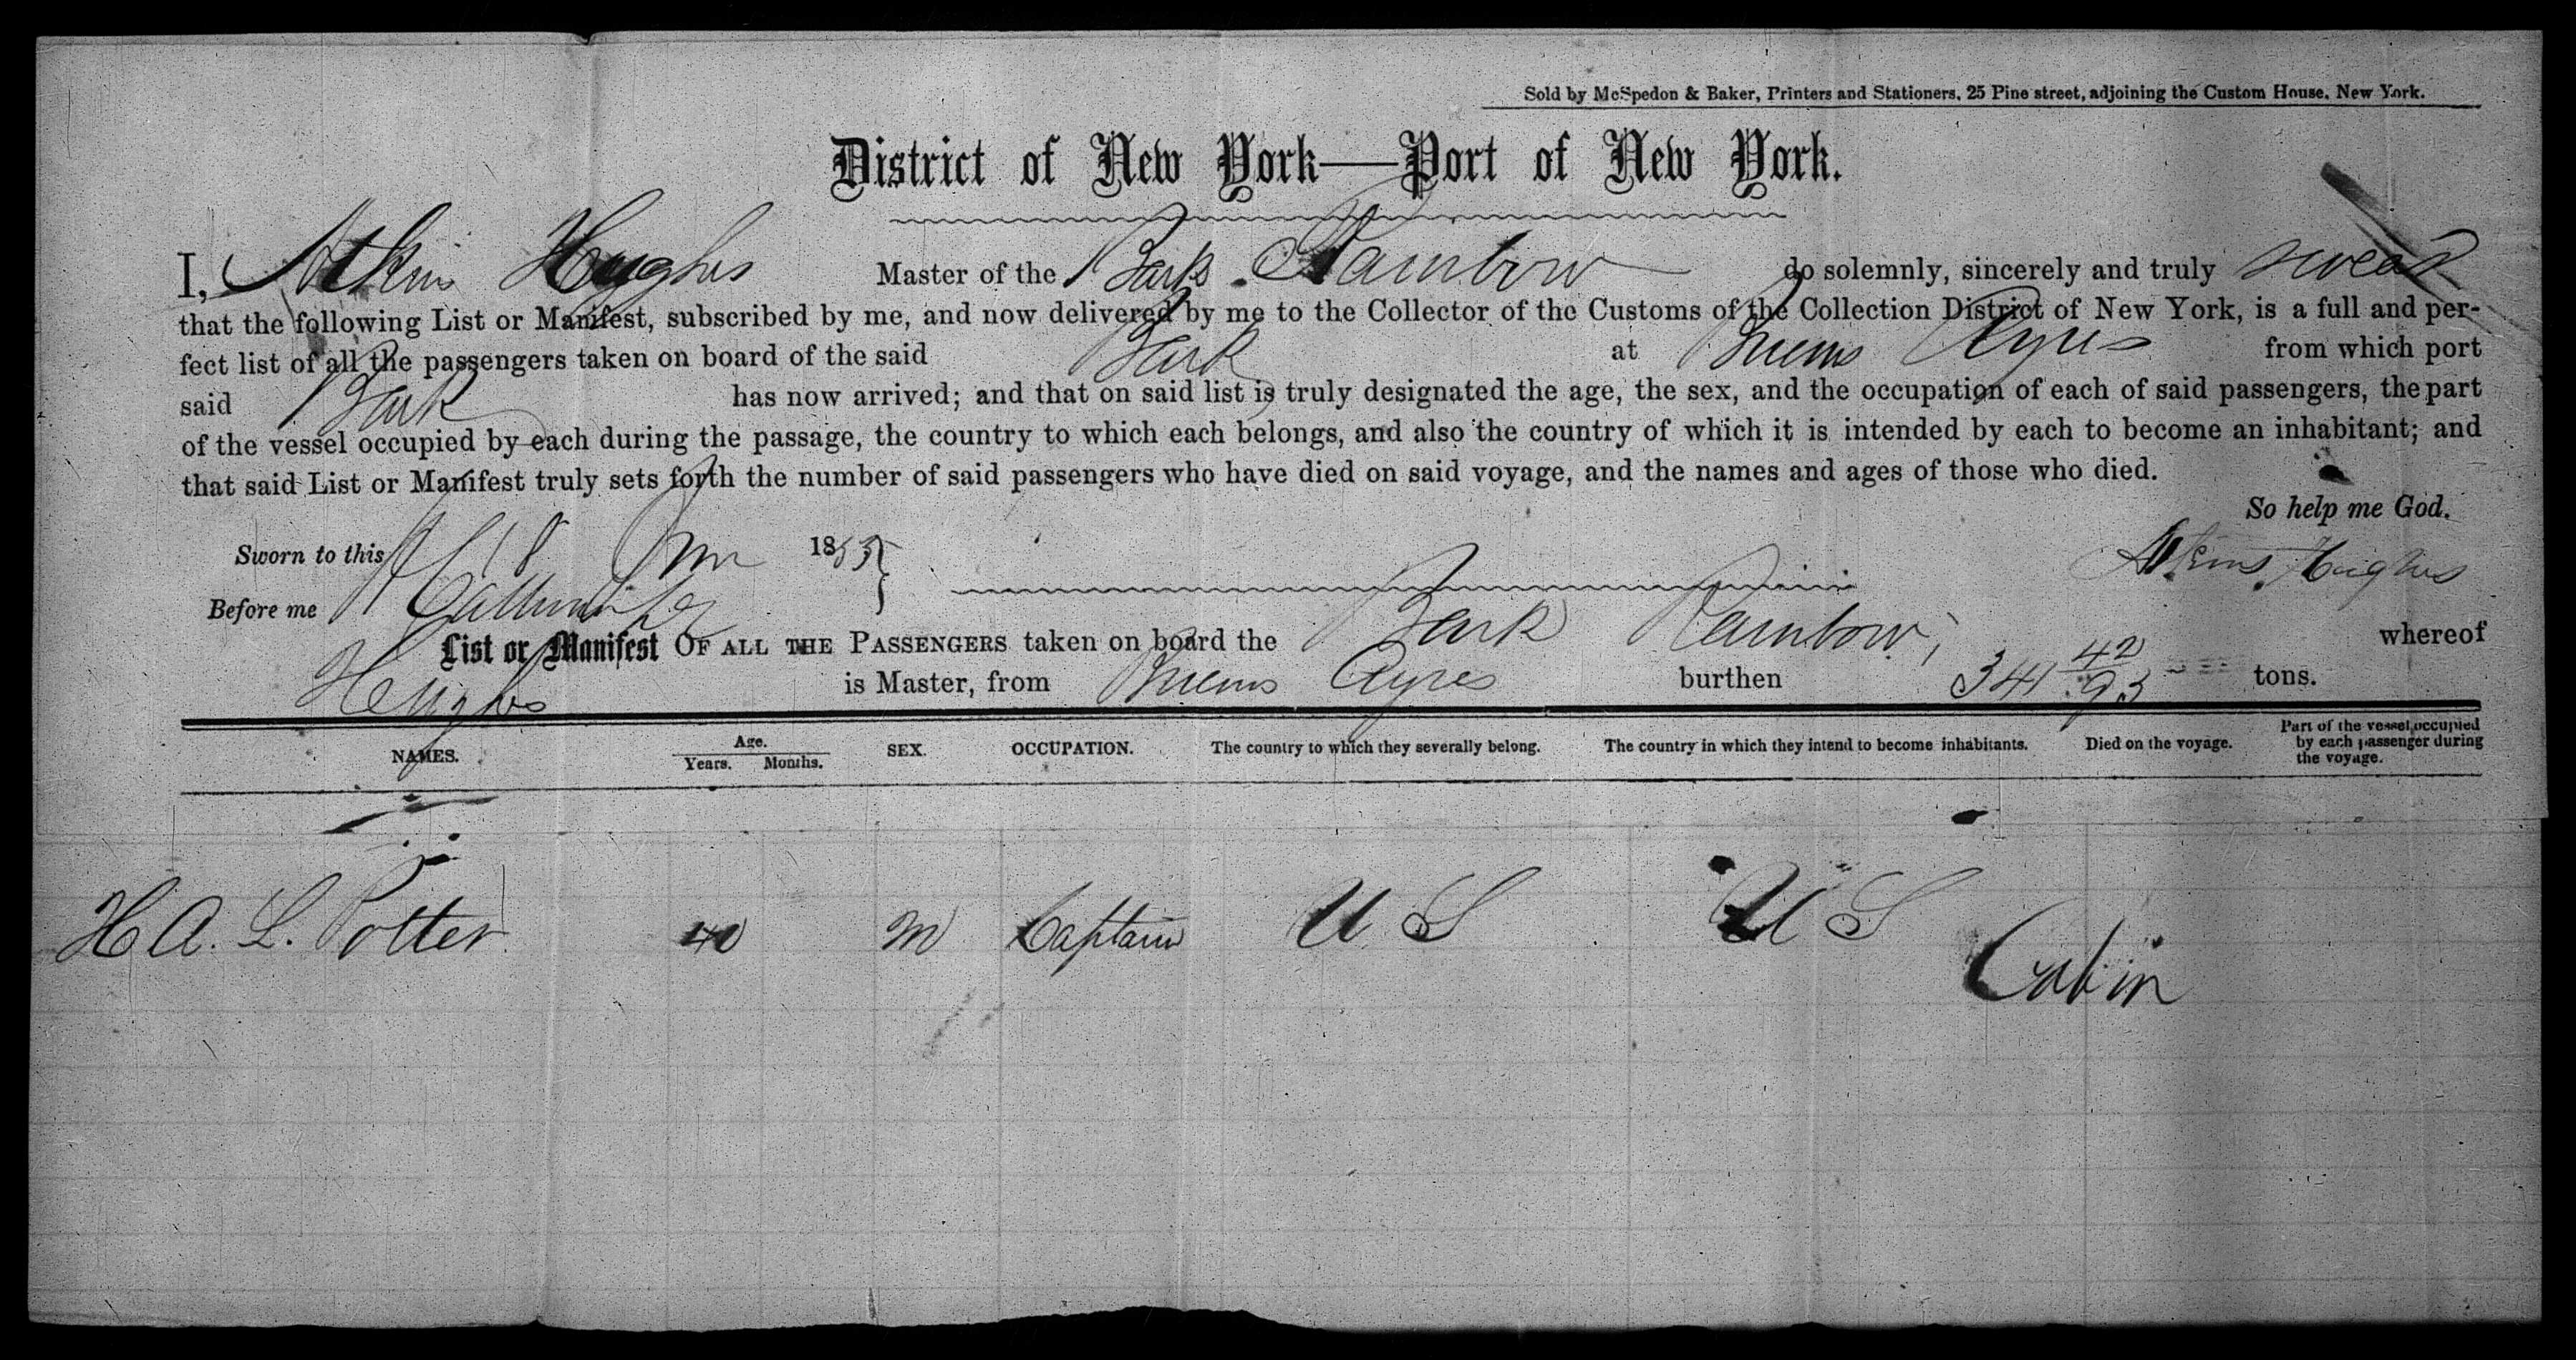 Sold by McSpedon & Baker, Printers and Stationers, 25 Pine street, adjoining the Custom House, New York.
District of New York—Port of New York.
I, Atkins Hughes Master of the Bark Rainbow do solemnly, sincerely and truly swear
that the following List or Manifest, subscribed by me, and now delivered by me to the Collector of the Customs of the Collection District of New York, is a full and per-
fect list of all the passengers taken on board of the said Bark at Buenos Ayres from which port
said Bark has now arrived; and that on said list is truly designated the age, the sex, and the occupation of each of said passengers, the part
of the vessel occupied by each during the passage, the country to which each belongs, and also the country of which it is intended by each to become an inhabitant; and
that said List or Manifest truly sets forth the number of said passengers who have died on said voyage, and the names and ages of those who died.
So help me God.
Sworn to this 18 1853 } Atkins Hughes
Before me
List or Manifest OF ALL THE PASSENGERS taken on board the Bark Rainbow, whereof
Hughes is Master, from Buenos Ayres burthen 341 42/95 tons.
NAMES. Age. Years. Months. SEX. OCCUPATION. The country to which they severally belong. The country in which they intend to become inhabitants. Died on the voyage. Part of the vessel occupied by each passenger during the voyage.
H A. L. Potter 40 M Captain U S U S Cabin